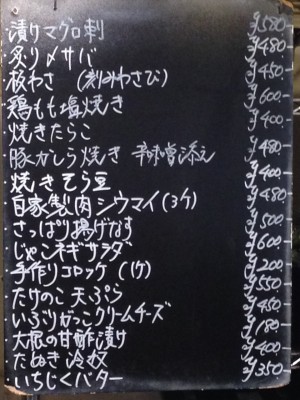 漬けマグロ刺 ¥580
炙り〆サバ ¥480
板わさ (刻みわさび) ¥450
鶏もも塩焼き ¥600
焼きたらこ ¥400
豚かしら焼き 辛味噌添え ¥480
焼きそら豆 ¥400
自家製肉シウマイ(3ケ) ¥480
さっぱり揚げなす ¥500
じゃこネギサラダ ¥600
手作りコロッケ (1ケ) ¥200
たけのこ 天ぷら ¥550
いぶりがっこクリームチーズ ¥450
大根の甘酢漬け ¥180
たぬき冷奴 ¥400
いちじくバター ¥350